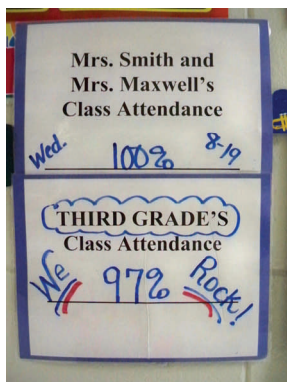 Mrs. Smith and
Mrs. Maxwell's
Class Attendance
Wed. 100% 8-19
THIRD GRADE'S
Class Attendance
We 97% Rock!